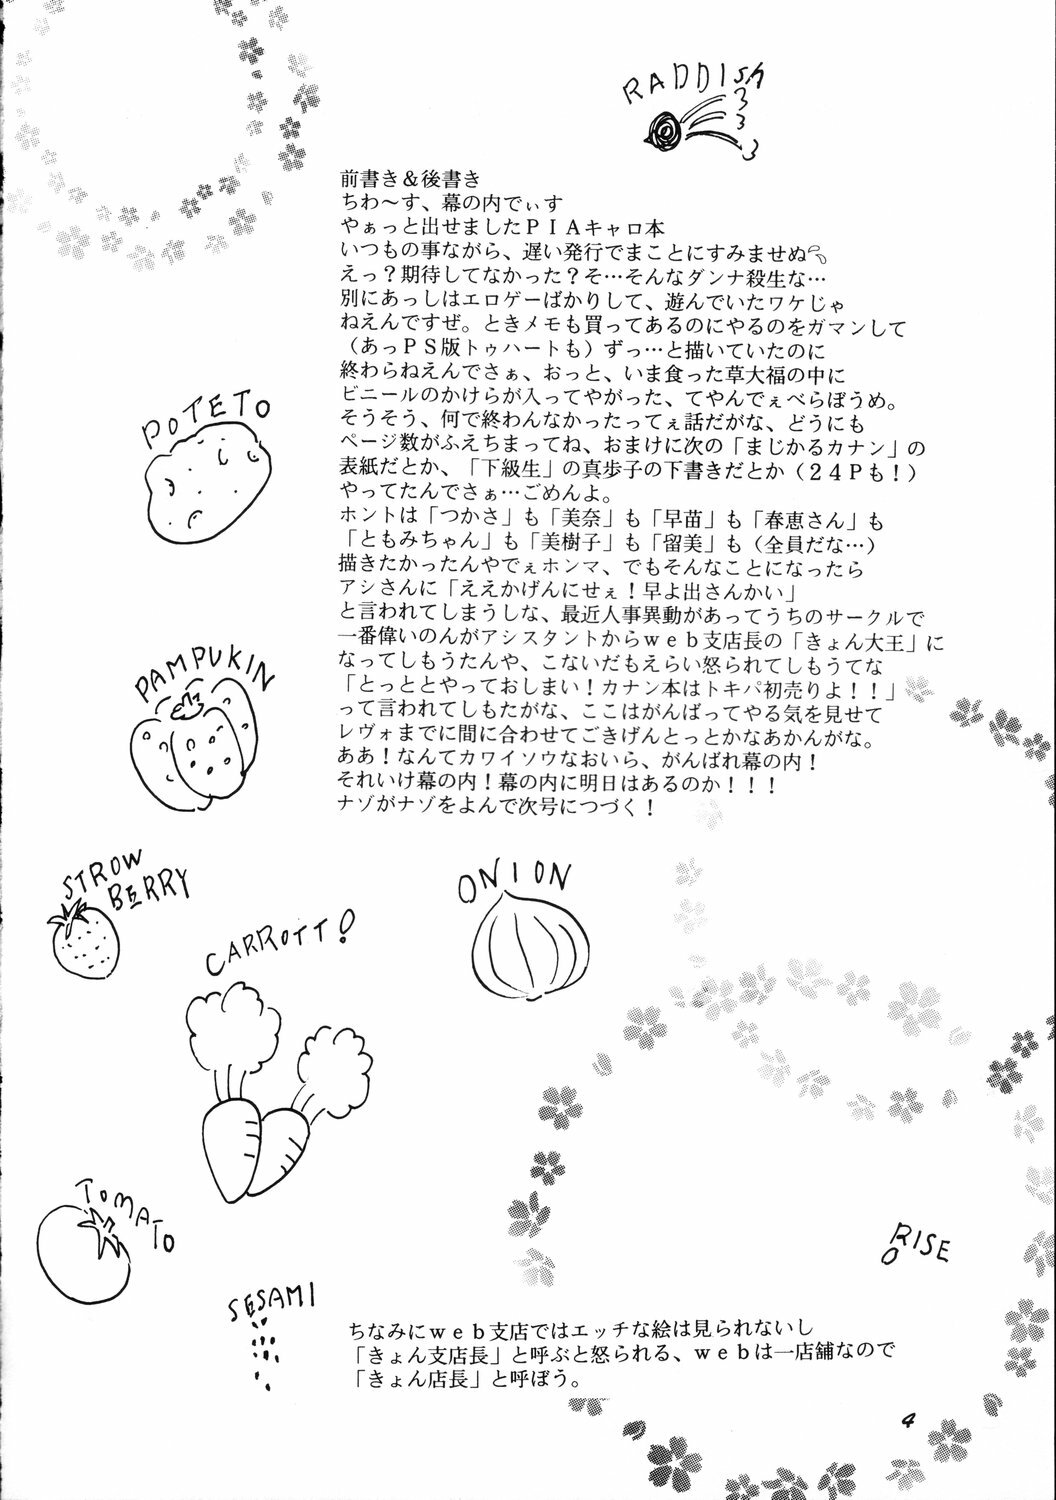 RADDISH
前書き＆後書き
ちわ〜す、幕の内でぃす
やぁっと出せましたＰＩＡキャロ本
いつもの事ながら、遅い発行でまことにすみませぬ
えっ？期待してなかった？そ…そんなダンナ殺生な…
別にあっしはエロゲーばかりして、遊んでいたワケじゃ
ねえんですぜ。ときメモも買ってあるのにやるのをガマンして
（あっＰＳ版トゥハートも）ずっ…と描いていたのに
終わらねえんでさぁ、おっと、いま食った草大福の中に
ビニールのかけらが入ってやがった、てやんでぇべらぼうめ。
そうそう、何で終わんなかったってぇ話だがな、どうにも
ページ数がふえちまってね、おまけに次の「まじかるカナン」の
表紙だとか、「下級生」の真歩子の下書きだとか（２４Ｐも！）
やってたんでさぁ…ごめんよ。
ホントは「つかさ」も「美奈」も「早苗」も「春恵さん」も
「ともみちゃん」も「美樹子」も「留美」も（全員だな…）
描きたかったんやでぇホンマ、でもそんなことになったら
アシさんに「ええかげんにせぇ！早よ出さんかい」
と言われてしまうしな、最近人事異動があってうちのサークルで
一番偉いのんがアシスタントからｗｅｂ支店長の「きょん大王」に
なってしもうたんや、こないだもえらい怒られてしもうてな
「とっととやっておしまい！カナン本はトキパ初売りよ！！」
って言われてしもたがな、ここはがんばってやる気を見せて
レヴォまでに間に合わせてごきげんとっとかなあかんがな。
ああ！なんてカワイソウなおいら、がんばれ幕の内！
それいけ幕の内！幕の内に明日はあるのか！！！
ナゾがナゾをよんで次号につづく！
POTETO
PAMPUKIN
STROW
BERRY
CARROTT!
ONION
TOMATO
SESAMI
RISE
ちなみにｗｅｂ支店ではエッチな絵は見られないし
「きょん支店長」と呼ぶと怒られる、ｗｅｂは一店舗なので
「きょん店長」と呼ぼう。
4